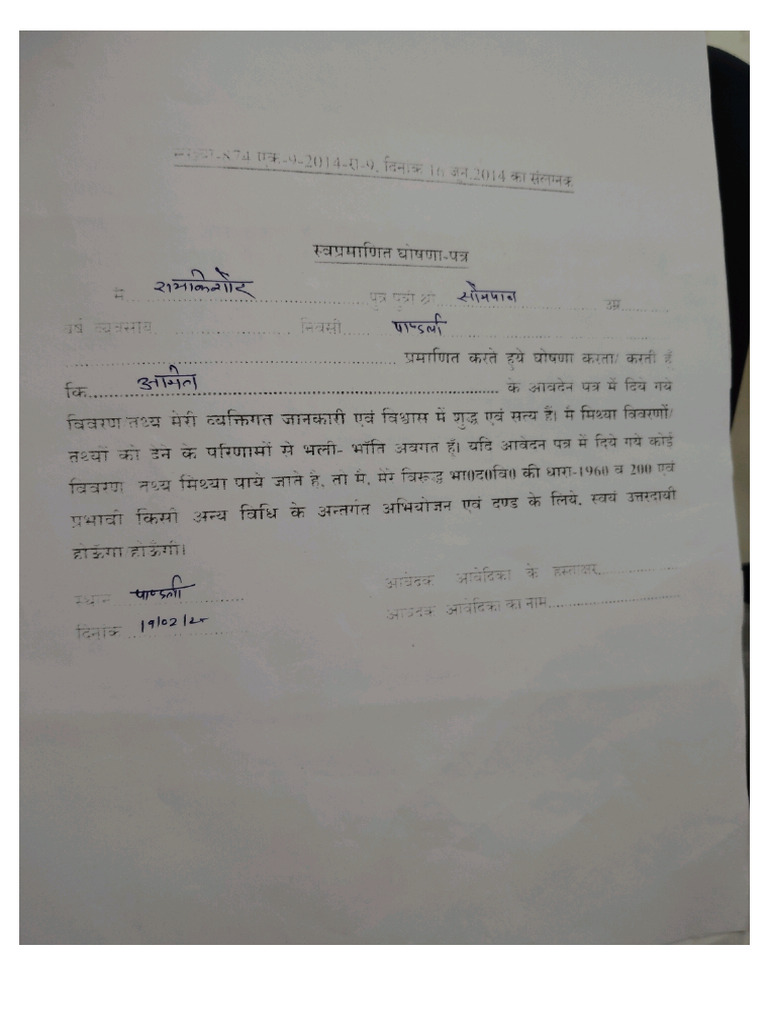 874 एक-9-2014-रा-9, दिनांक 16 जून, 2014 का संलग्नक
स्वप्रमाणित घोषणा-पत्र
मैं रामकिशोर पुत्र पुत्री श्री सोमपाल उम्र
वर्ष व्यवसाय निवासी पाण्डली
प्रमाणित करते हुये घोषणा करता/ करती हूँ
कि अमित के आवदेन पत्र में दिये गये
विवरण तथ्य मेरी व्यक्तिगत जानकारी एवं विश्वास में शुद्ध एवं सत्य हैं। मैं मिथ्या विवरणों/
तथ्यों को देने के परिणामों से भली- भाँति अवगत हूँ। यदि आवेदन पत्र में दिये गये कोई
विवरण तथ्य मिथ्या पाये जाते है, तो मै, मेरे विरूद्ध भा0द0वि0 की धारा-1960 व 200 एवं
प्रभावी किसी अन्य विधि के अन्तर्गत अभियोजन एवं दण्ड के लिये, स्वयं उत्तरदायी
होऊँगा/होऊँगी।
आवेदक आवेदिका के हस्ताक्षर
स्थान पाण्डली
आवेदक आवेदिका का नाम
दिनांक 19/02/25